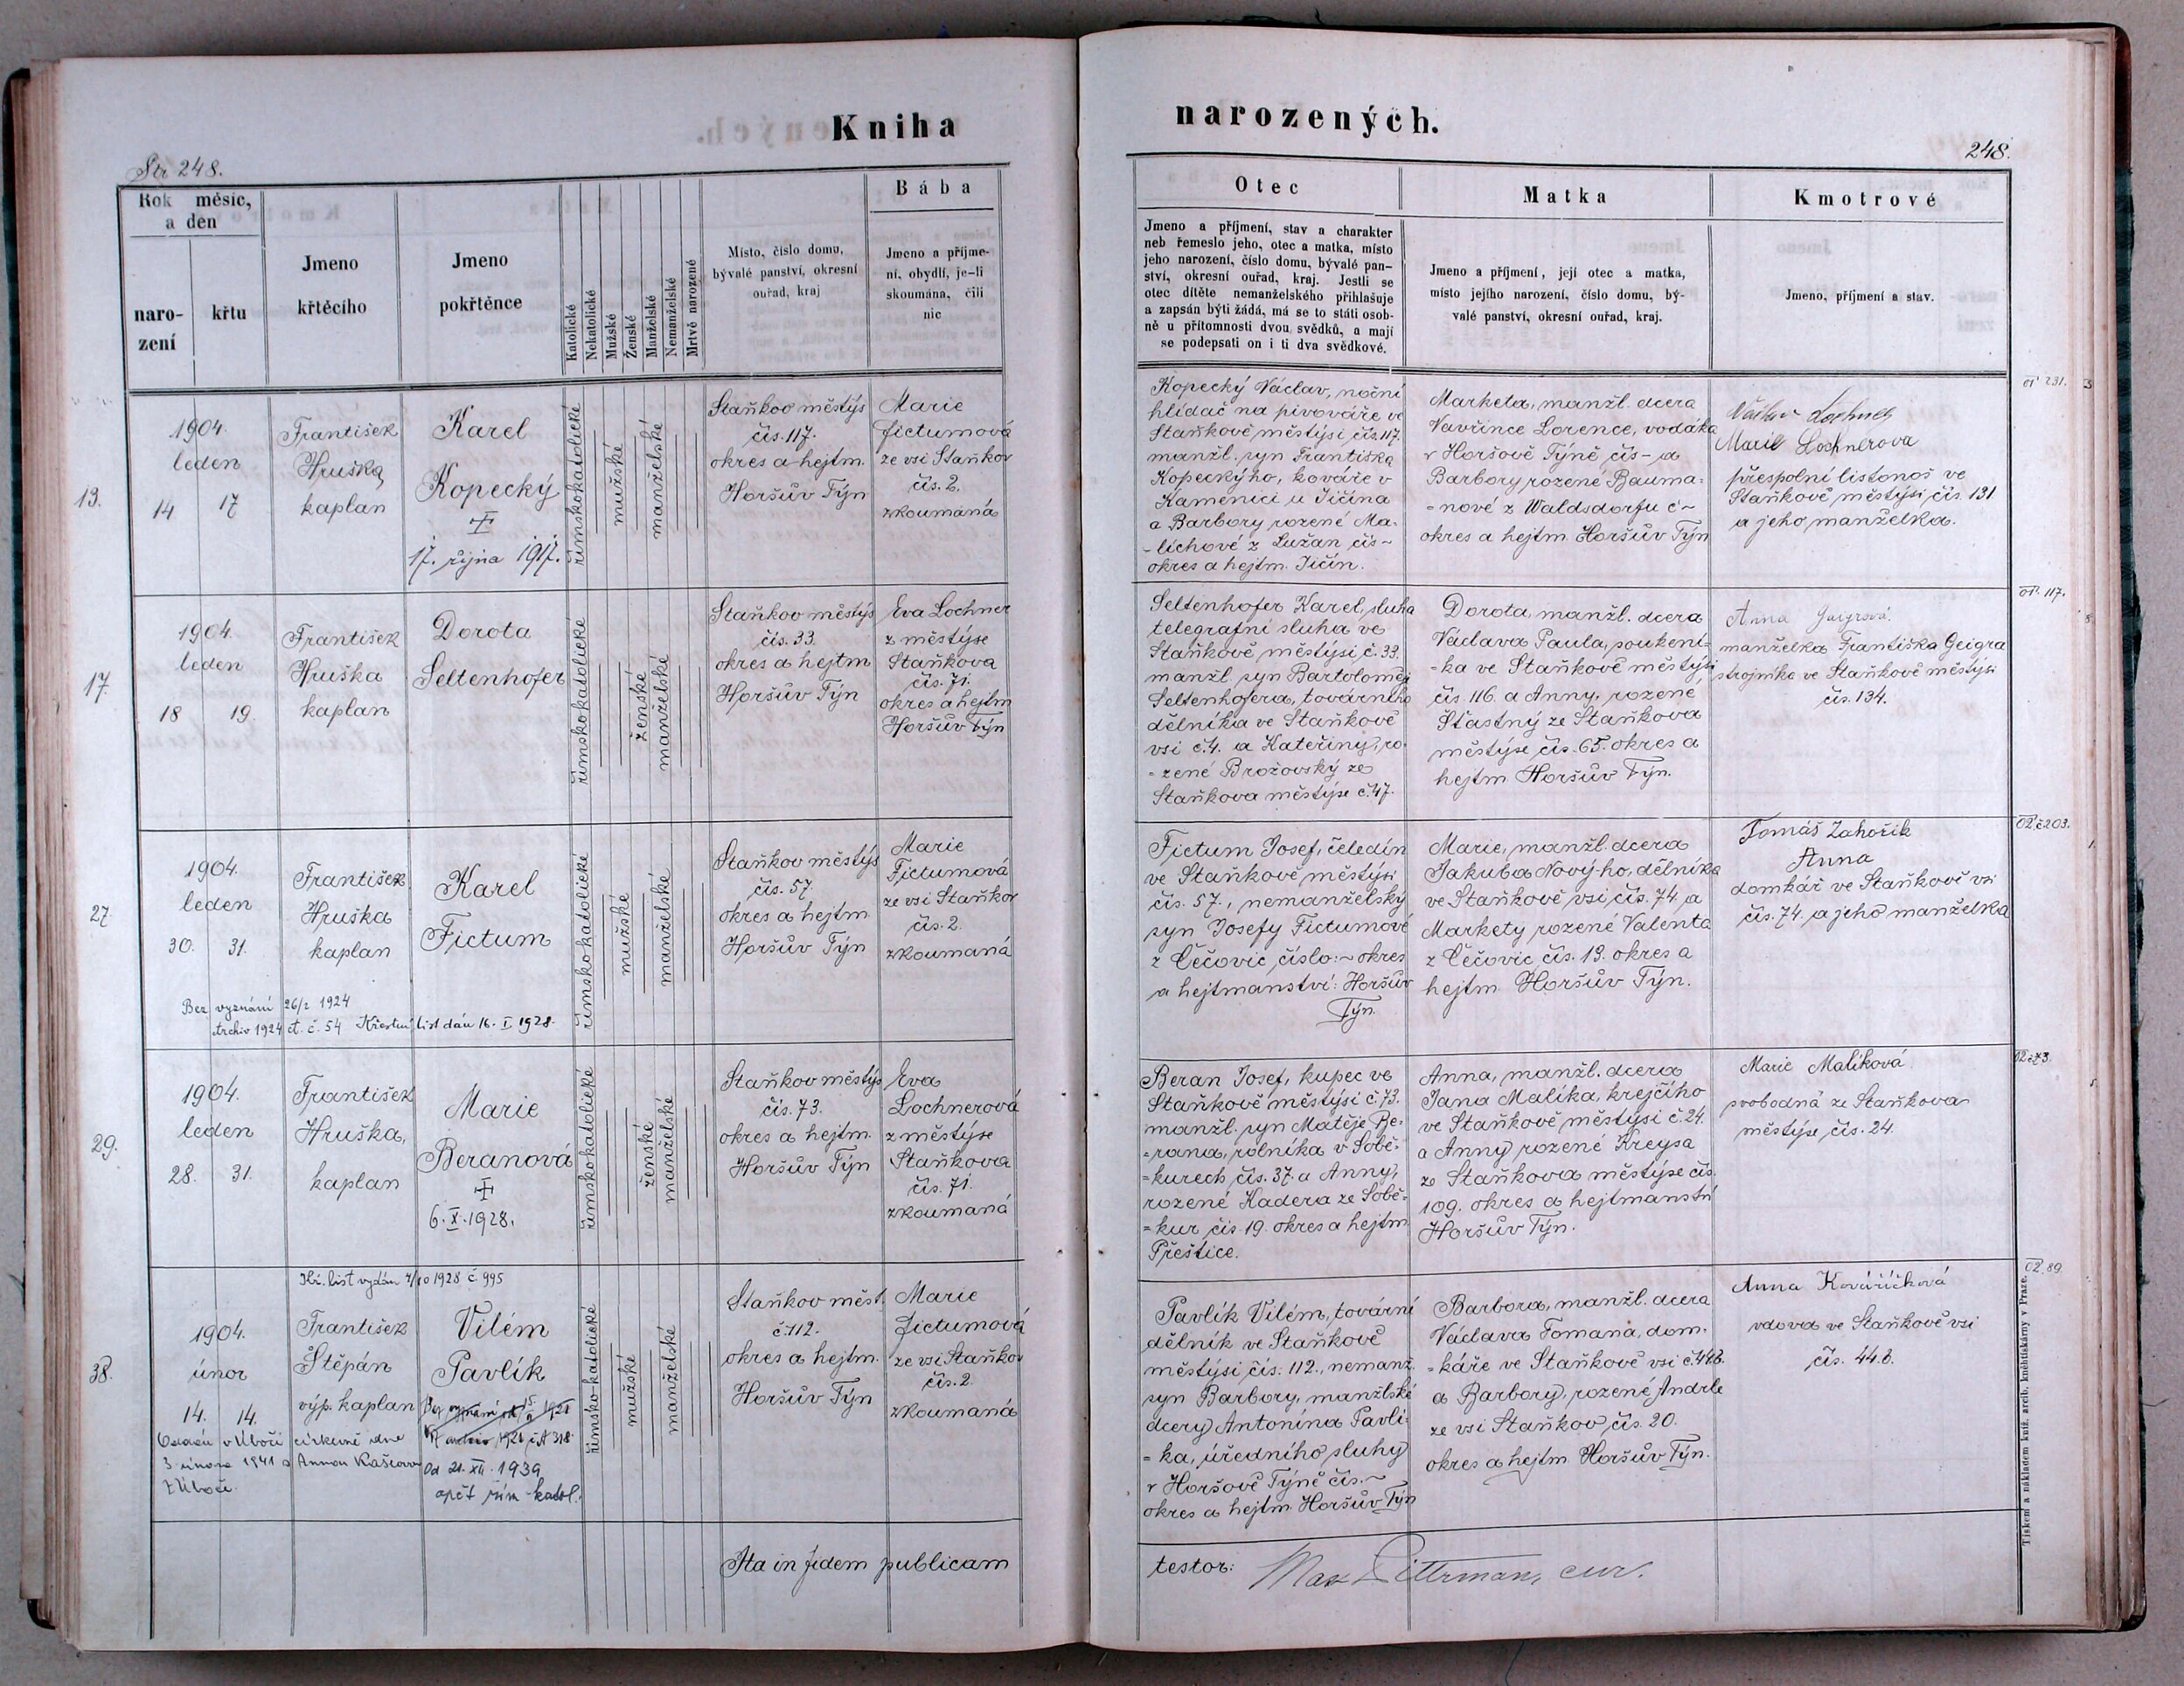 Kniha
narozených.
Str 248.
248.
Rok měsíc,
a den
naro-
zení
křtu
Jmeno
křtěcího
Jmeno
pokřtěnce
Katolické
Nekatolické
Mužské
Ženské
Manželské
Nemanželské
Mrtvě narozené
Místo, číslo domu,
bývalé panství, okresní
ouřad, kraj
Bába
Jmeno a příjme-
ní, obydlí, je-li
skoumána, čili
nic
Otec
Jmeno a příjmení, stav a charakter
neb řemeslo jeho, otec a matka, místo
jeho narození, číslo domu, bývalé pan-
ství, okresní ouřad, kraj. Jestli se
otec dítěte nemanželského přihlašuje
a zapsán býti žádá, má se to státi osob-
ně u přítomnosti dvou svědků, a mají
se podepsati on i ti dva svědkové.
Matka
Jmeno a příjmení, její otec a matka,
místo jejího narození, číslo domu, bý-
valé panství, okresní ouřad, kraj.
Kmotrové
Jmeno, příjmení a stav.
13.
1904.
leden
14 17
František
Hruška
kaplan
Karel
Kopecký
17. října 1917.
římskokatolické
mužské
manželské
Staňkov městýs
čís. 117.
okres a hejtm.
Horšův Týn
Marie
Fictumová
ze vsi Staňkov
čís. 2.
zkoumaná
Kopecký Václav, noční
hlídač na pivováře ve
Staňkově městýsi čís. 117.
manžl. syn Františka
Kopeckýho, kováře v
Kamenici u Jičína
a Barbory rozené Ma-
-líchové z Lužan čís ~
okres a hejtm. Jičín.
Marketa, manžl. dcera
Vavřince Lorence, vodáka
v Horšově Týně čís - a
Barbory rozené Bauma-
=nové z Waldsdorfu č ~
okres a hejtm Horšův Týn
Václav Lochner
Marie Lochnerova
přespolní listonoš ve
Staňkově městýsi čís. 131
a jeho manželka.
17.
1904.
leden
18 19.
František
Hruška
kaplan
Dorota
Seltenhofer
římskokatolické
ženské
manželské
Staňkov městýs
čís. 33.
okres a hejtm
Horšův Týn
Eva Lochner
z městýse
Staňkova
čís. 71.
okres a hejtm
Horšův Týn
Seltenhofer Karel, sluha
telegrafní sluha ve
Staňkově městýsi č. 33.
manžl. syn Bartoloměje
Seltenhofera, továrního
dělníka ve Staňkově
vsi č. 4. a Kateřiny, ro-
=zené Brožovský ze
Staňkova městýse č. 47.
Dorota, manžl. dcera
Václava Paula, soukení-
=ka ve Staňkově městýsi
čís. 116. a Anny, rozené
Šťastný ze Staňkova
městýse čís. 65. okres a
hejtm Horšův Týn.
Anna
manželka Františka Geigra
strojníka ve Staňkově městýsi
čís. 134.
117.
27.
1904.
leden
30. 31.
František
Hruška
kaplan
Karel
Fictum
Bez vyznání 26/2 1924
archiv 1924 ct. č. 54 Křestní list dán 16. I. 1928.
římskokatolické
mužské
manželské
Staňkov městýs
čís. 57.
okres a hejtm
Horšův Týn
Marie
Fictumová
ze vsi Staňkov
čís. 2.
zkoumaná
Fictum Josef, čeledín
ve Staňkově městýsi
čís. 57., nemanželský
syn Josefy Fictumové
z Čečovic číslo: ~ okres
a hejtmanství: Horšův
Týn.
Marie, manžl. dcera
Jakuba Nový-ho, dělníka
ve Staňkově vsi, čís. 74 a
Markety rozené Valenta
z Čečovic čís. 13. okres a
hejtm Horšův Týn.
Tomáš Zahořík
Anna
domkář ve Staňkově vsi
čís. 74 a jeho manželka
02 č 203.
29.
1904.
leden
28. 31.
František
Hruška,
kaplan
Marie
Beranová
6. X. 1928.
římskokatolické
ženské
manželské
Staňkov městýs
čís. 73.
okres a hejtm.
Horšův Týn
Eva
Lochnerová
z městýse
Staňkova
čís. 71.
zkoumaná
Beran Josef, kupec ve
Staňkově městýsi č. 73.
manžl. syn Matěje Be-
=rana, rolníka v Sobě-
=kurech, čís. 37. a Anny,
rozené Kadera ze Sobě-
=kur čís. 19. okres a hejtm
Přeštice.
Anna, manžl. dcera
Jana Malíka, krejčího
ve Staňkově městýsi č. 24.
a Anny rozené Kreysa
ze Staňkova městýse čís.
109. okres a hejtmanství
Horšův Týn.
Marie Malíková
svobodná ze Staňkova
městýse, čís. 24.
38.
Kř. list vydán 4/10 1928 č. 995
1904.
únor
14. 14.
František
Štěpán
výp. kaplan
Vilém
Pavlík
Od 21. XII. 1939
opět řím-katol.
Oddán v Úboči církevně dne
3. února 1941 s Annou
z Úboče.
římsko-katolické
mužské
manželské
Staňkov měst.
č. 112.
okres a hejtm.
Horšův Týn
Marie
Fictumová
ze vsi Staňkov
čís. 2.
zkoumaná
Pavlík Vilém, tovární
dělník ve Staňkově
městýsi čís. 112., nemanž.
syn Barbory, manžlské
dcery Antonína Pavlí-
=ka, úředního sluhy
v Horšově Týně čís. ~
okres a hejtm Horšův Týn
Barbora, manžl. dcera
Václava Tomana, dom-
=káře ve Staňkově vsi č. 44b.
a Barbory, rozené Andrle
ze vsi Staňkov, čís. 20.
okres a hejtm Horšův Týn.
Anna Kováříčková
vdova ve Staňkově vsi
čís. 44. b.
02. 89
Ita in fidem publicam
testor:
Max Dittrman, cur.
Tiskem a nákladem kníž. arcib. knihtiskárny v Praze.